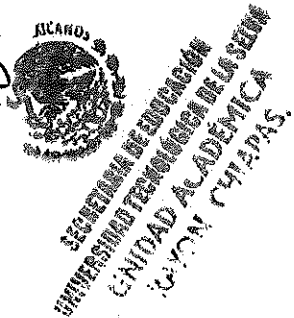 ICANOS
SECRETARIA DE EDUCACIÓN
UNIVERSIDAD TECNOLÓGICA DE LA SELVA
UNIDAD ACADÉMICA
CHIAPAS.